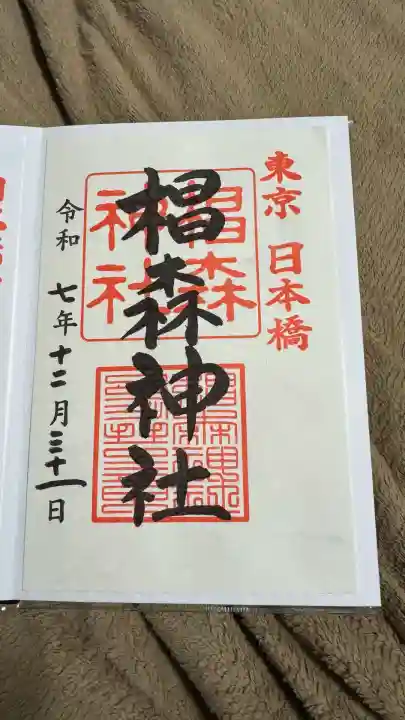 東京 日本橋
椙森神社
椙森
神社
令和 七年 十二月 三十一日